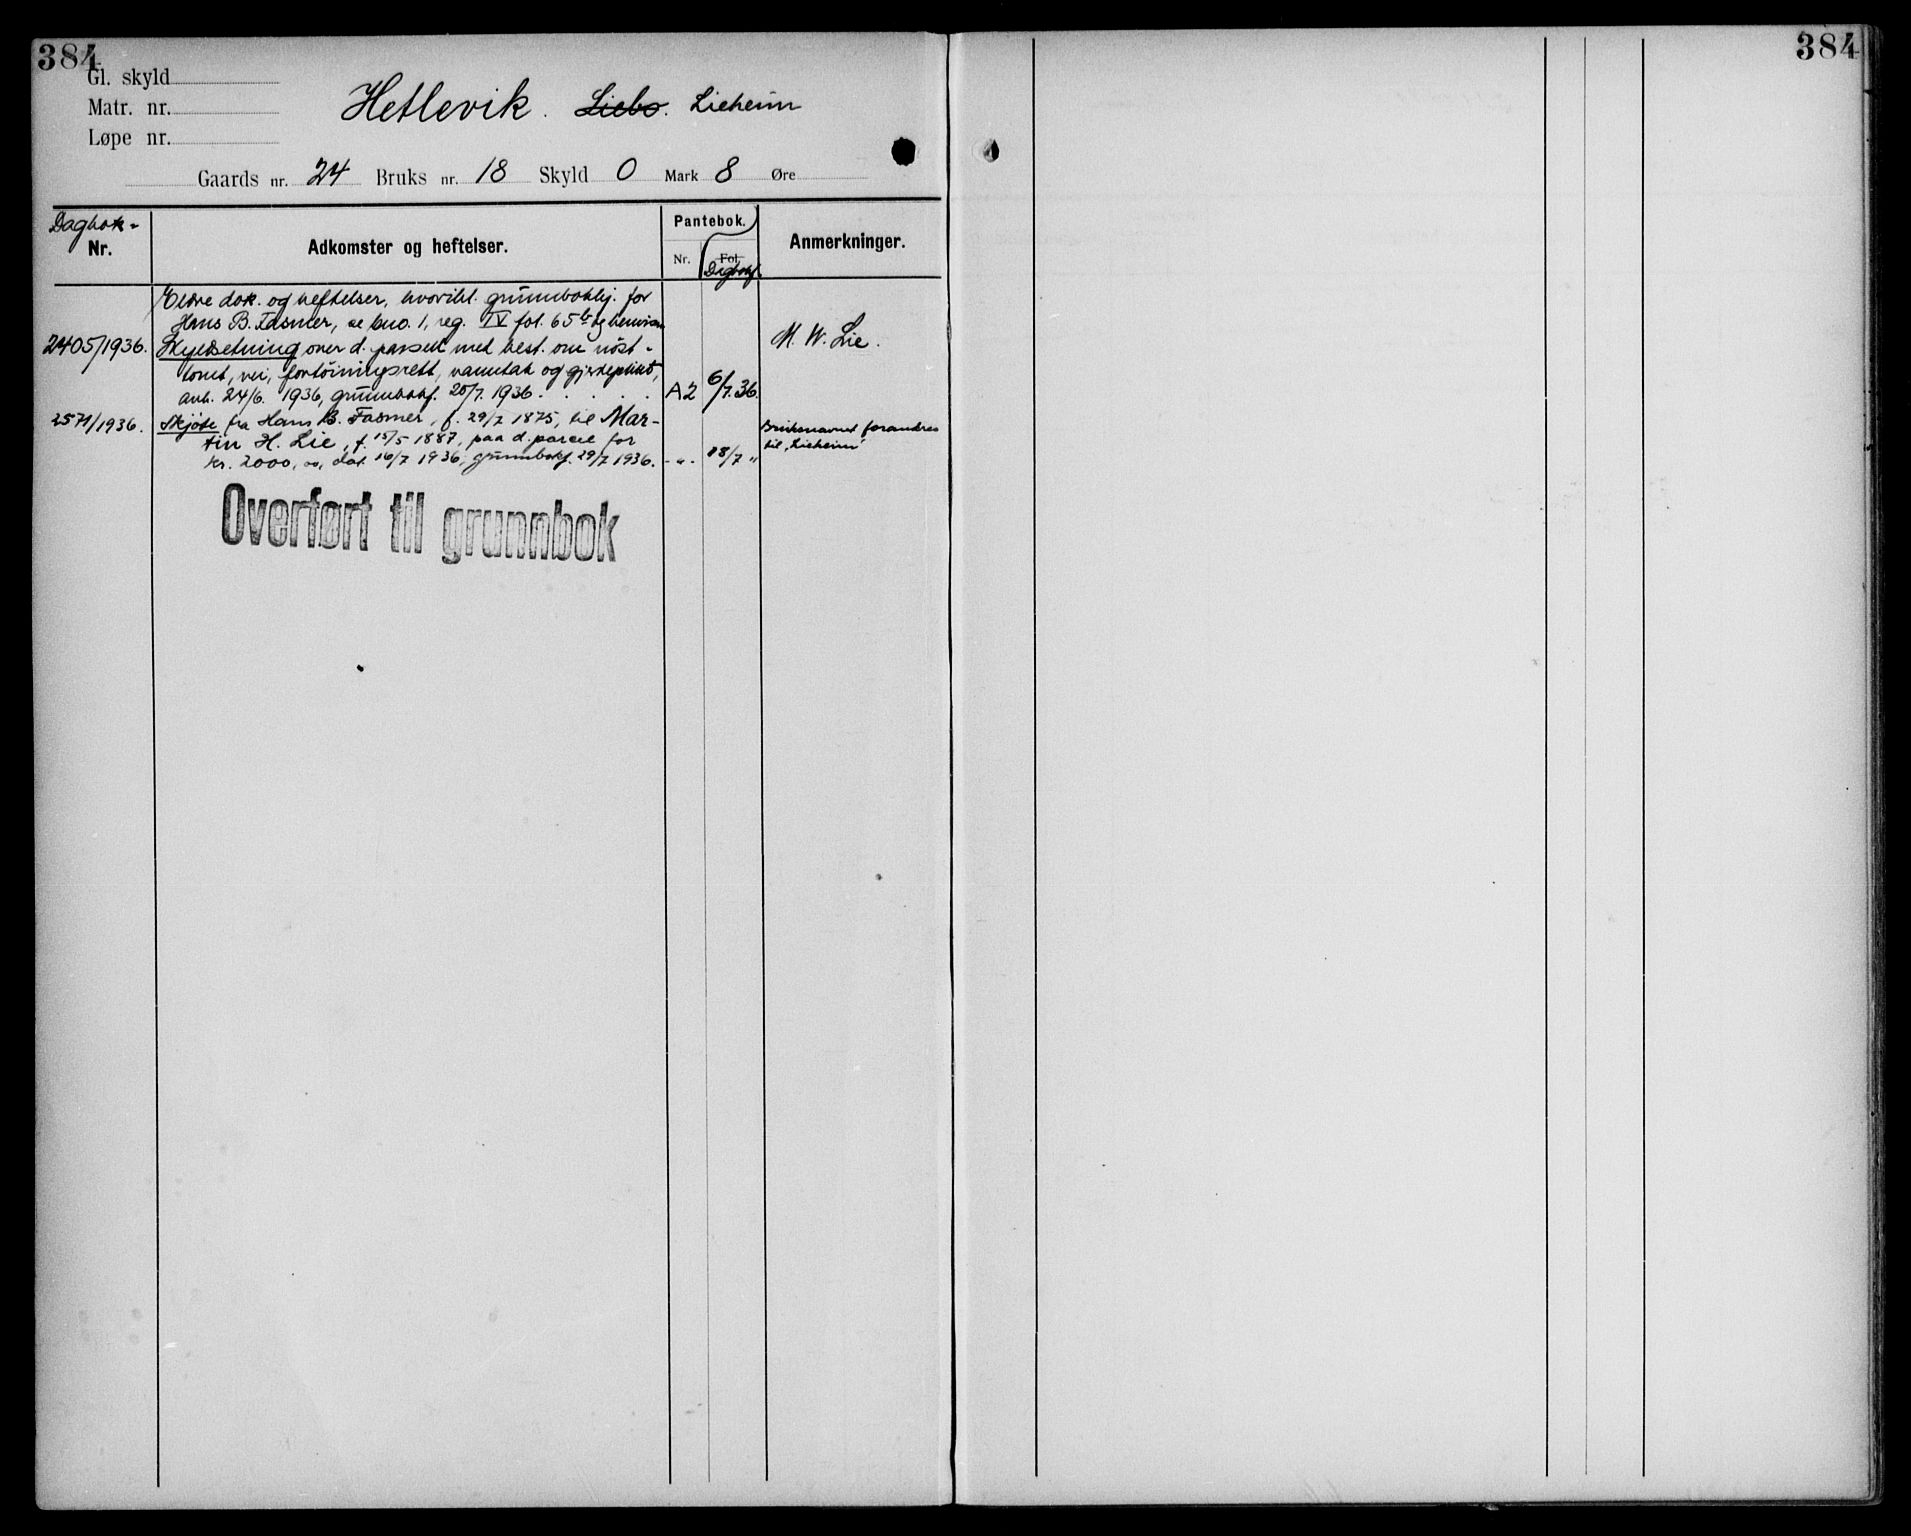 384
384
Gl. skyld
Matr. nr.
Løpe nr.
Hetlevik. Liebo. Lieheim
Gaards nr. 24 Bruks nr. 18 Skyld 0 Mark 8 Øre
Dagbok-
Nr.
Adkomster og heftelser.
Pantebok.
Nr.
Fol.
Dagbokf.
Anmerkninger.
Eldre dok. og heftelser, hvoribl. grunnbokhj. for
Hans B. Fasmer, se bno. 1, reg. IV fol. 65 b og henvisn.
2405/1936. Skyldsetning over d. parsell med best. om nøst-
tomt, vei, fortøiningsrett, vanntak og gjerdeplikt,
avh. 24/6. 1936, grunnbokf. 20/7. 1936. . . . . A2 6/7.36.
M. W. Lie.
2571/1936. Skjøte fra Hans B. Fasmer, f. 29/7 1875, til Mar-
tin H. Lie, f. 15/5 1887, paa d. parcel for
kr. 2000,00, dat. 16/7 1936, grunnbokf. 29/7 1936. -"- 18/7 "
Bruksnavnet forandres
til "Lieheim"
Overført til grunnbok